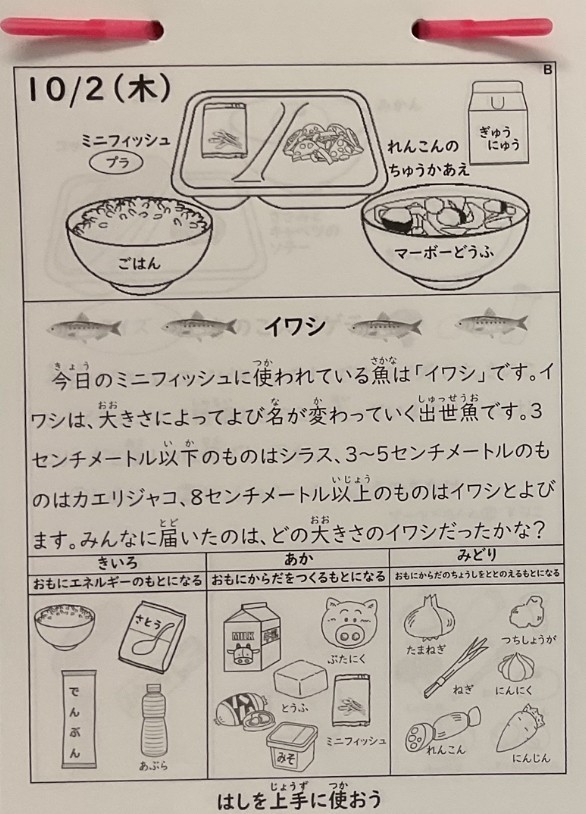 B
10/2(木)
ミニフィッシュ
プラ
れんこんの
ちゅうかあえ
ぎゅう
にゅう
ごはん
マーボーどうふ
イワシ
今日のミニフィッシュに使われている魚は「イワシ」です。イ
ワシは、大きさによってよび名が変わっていく出世魚です。3
センチメートル以下のものはシラス、3~5センチメートルのも
のはカエリジャコ、8センチメートル以上のものはイワシとよび
ます。みんなに届いたのは、どの大きさのイワシだったかな?
きいろ
おもにエネルギーのもとになる
さとう
でんぷん
あぶら
あか
おもにからだをつくるもとになる
MILK
ぶたにく
とうふ
ミニフィッシュ
みそ
みどり
おもにからだのちょうしをととのえるもとになる
たまねぎ
つちしょうが
ねぎ
にんにく
れんこん
にんじん
はしを上手に使おう